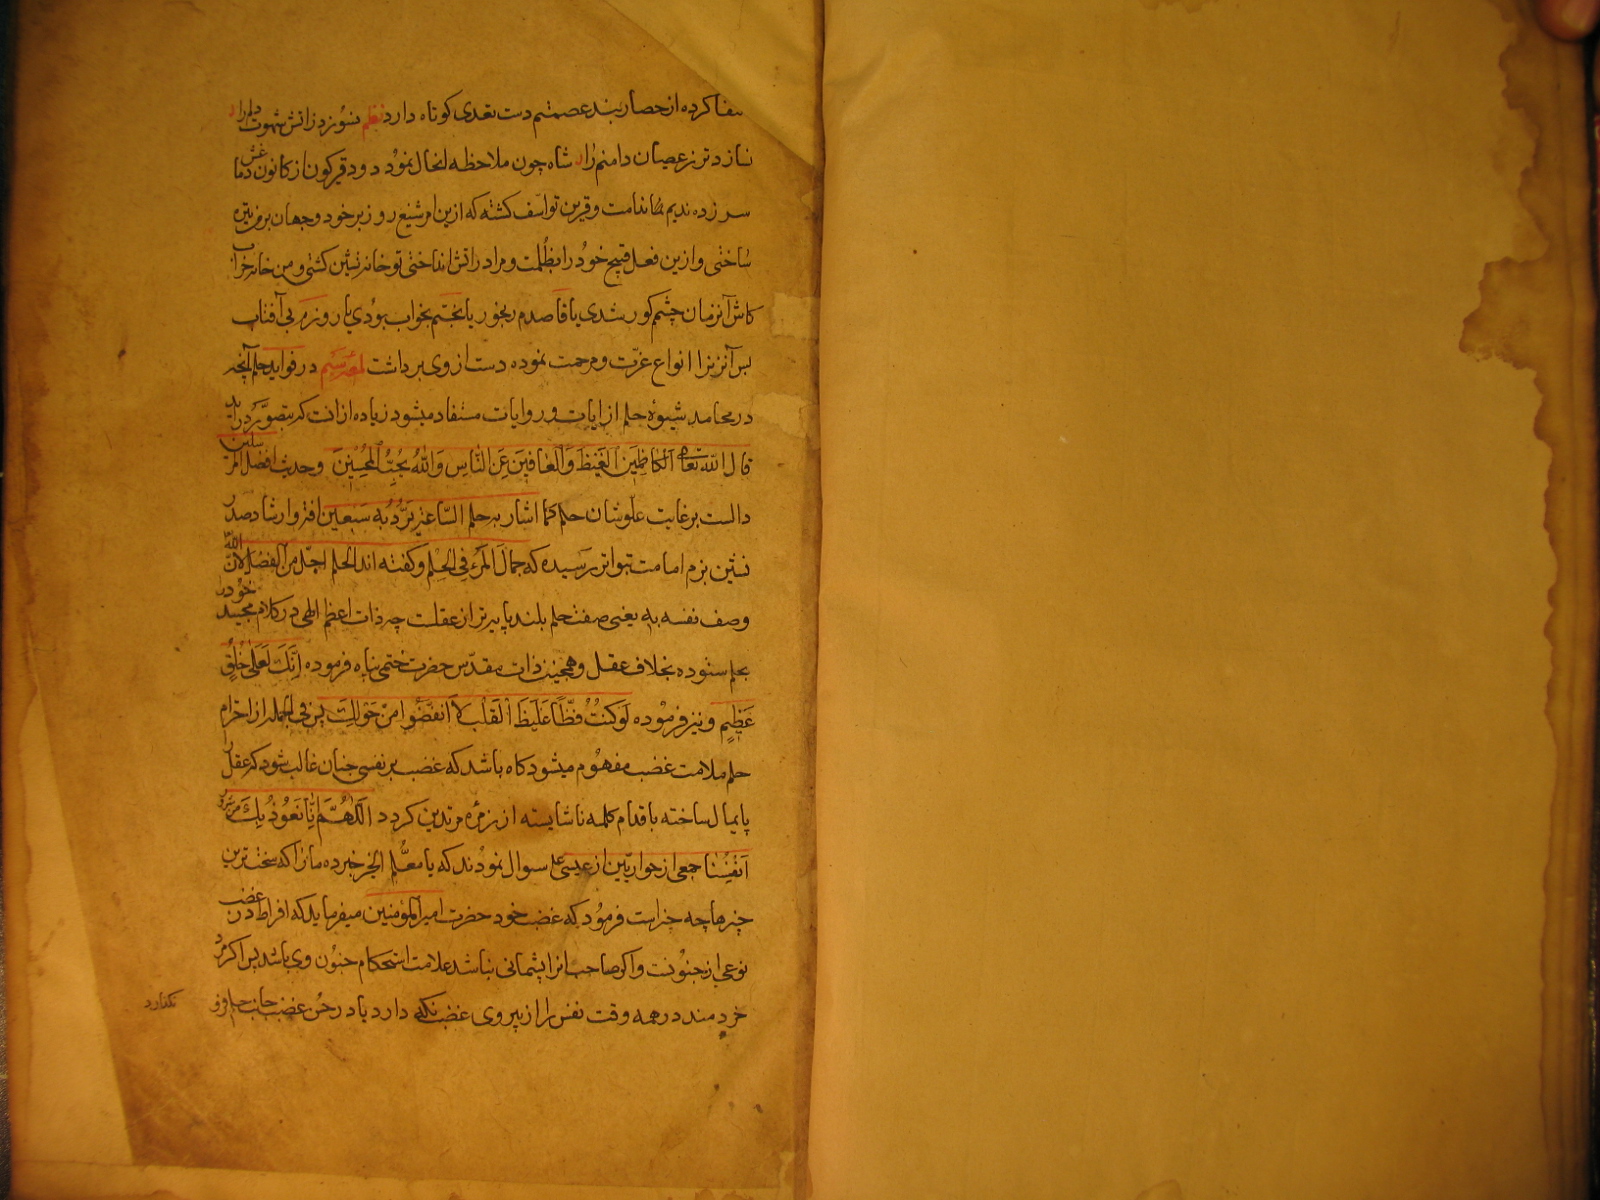 کرده از حصار بند عصمتم دست تعدی کوتاه دارد نظم بسوزد ز آتش شهوت دلم را
نسازد تر ز عصیان دامنم را شاه چون ملاحظه انحال نمود دود قیرگون از کانون
سر زده ندیم ندامت و قرین تواسف کشته که ازین امر شنیع روز بر خود و جهان بر من تیره
ساختی و ازین فعل قبیح خود را بظلمت و مرا در اتش انداختی تو خانه نشین کشتی و من خانه خراب
کاش آنزمان چشمم کور شدی یا قاصدم رنجور یا بختم بخواب بودی یا روزم بی آفتاب
پس آنزنرا انواع عزت و مرحمت نموده دست از وی برداشت در فواید حلم آنچه
در محامد شیوهٔ حلم از ایات و روایات مستفاد میشود زیاده از انست که بتصور دراید
قال الله تعالی الکاظمین الغیظ والعافین عن الناس والله یحب المحسنین و حدیث افضل
دالست بر غایت علو شان حلم کما اشار به حلم الساعة یرد به سبعین افة و ارشاد صدر
نشین بزم امامت بتواتر رسیده که جمال المرء فی الحلم و کفته اند الحلم اجل من العقل لان الله
وصف نفسه به یعنی صفت حلم بلند پایه تر از عقلست چه ذات اعظم الهی در کلام مجید خود را
بحلم ستوده بخلاف عقل و همچنین ذات مقدس حضرت ختمی پناه فرموده انک لعلی خلق
عظیم و نیز فرموده لو کنت فظا غلیظ القلب لا انفضوا من حولک پس فی الجمله از احترام
حلم ملامت غضب مفهوم میشود کاه باشد که غضب بر نفسی چنان غالب شود که عقل را
پایمال ساخته باقدام کلمه ناشایسته از زمره مرتدین کردد اللهم انا نعوذ بک من شرور
انفسنا جمعی از حواریین از عیسی سوال نمودند که یا معلم الخیر خبر ده ما را که سخت ترین
چیزها چه چیز است فرمود که غضب خود حضرت امیر المؤمنین میفرماید که افراط در غضب
نوعی از جنونست و اکر صاحب انرا پشیمانی نباشد علامت استحکام جنون وی باشد پس اکر مرد
خردمند در همه وقت نفس را از پیروی غضب نکه دارد یا در حین غضب جانب حلم فرو
نکذارد